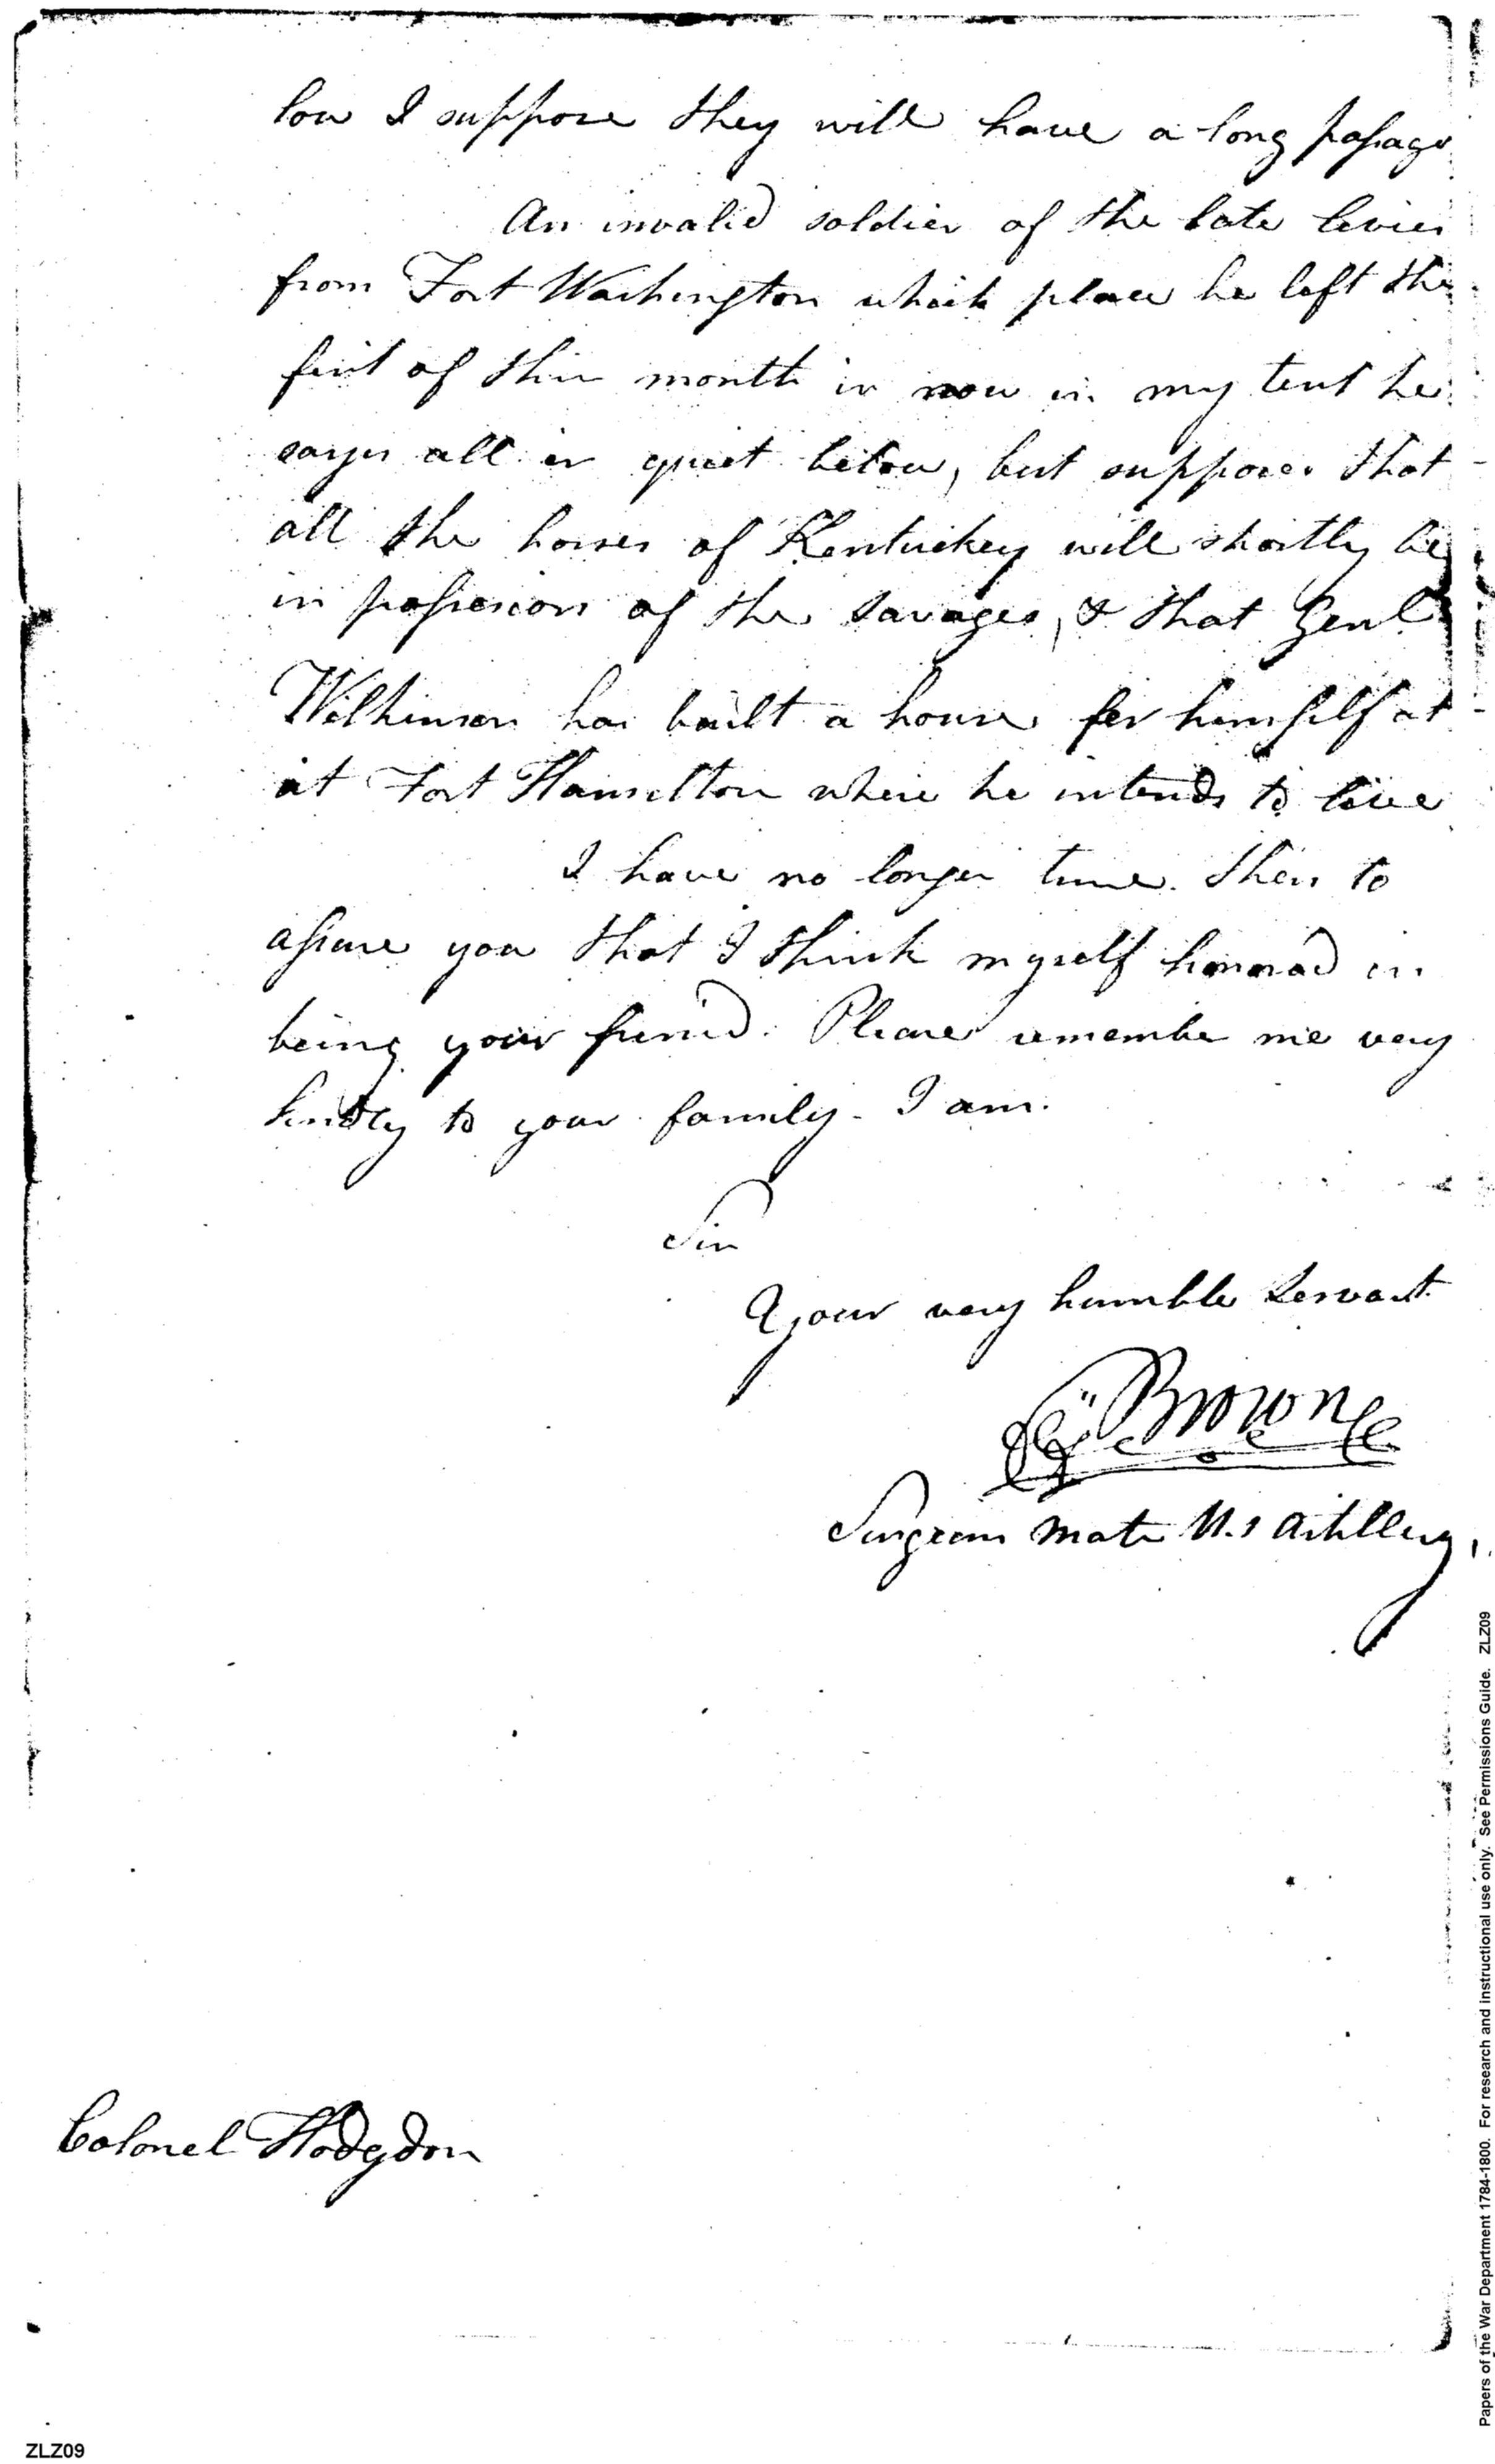 low I suppose they will have a long passage
An invalid soldier of the late levies
from Fort Washington which place he left the
first of this month is now in my tent he
sayes all is quiet below, but supposes that
all the horses of Kentuckey will shortly be
in possession of the Savages, & that Genl
Wilkinson has built a house for himself at
at Fort Hamilton where he intends to live
I have no longer time. then to
assure you that I think myself honored in
being your friend. Please remember me very
kindly to your family - I am.
Sir
Your very humble Servant.
Brown
Surgeon mate U.S Artillery,
Colonel Hodgdon
ZLZ09
Papers of the War Department 1784-1800. For research and instructional use only. See Permissions Guide. ZLZ09